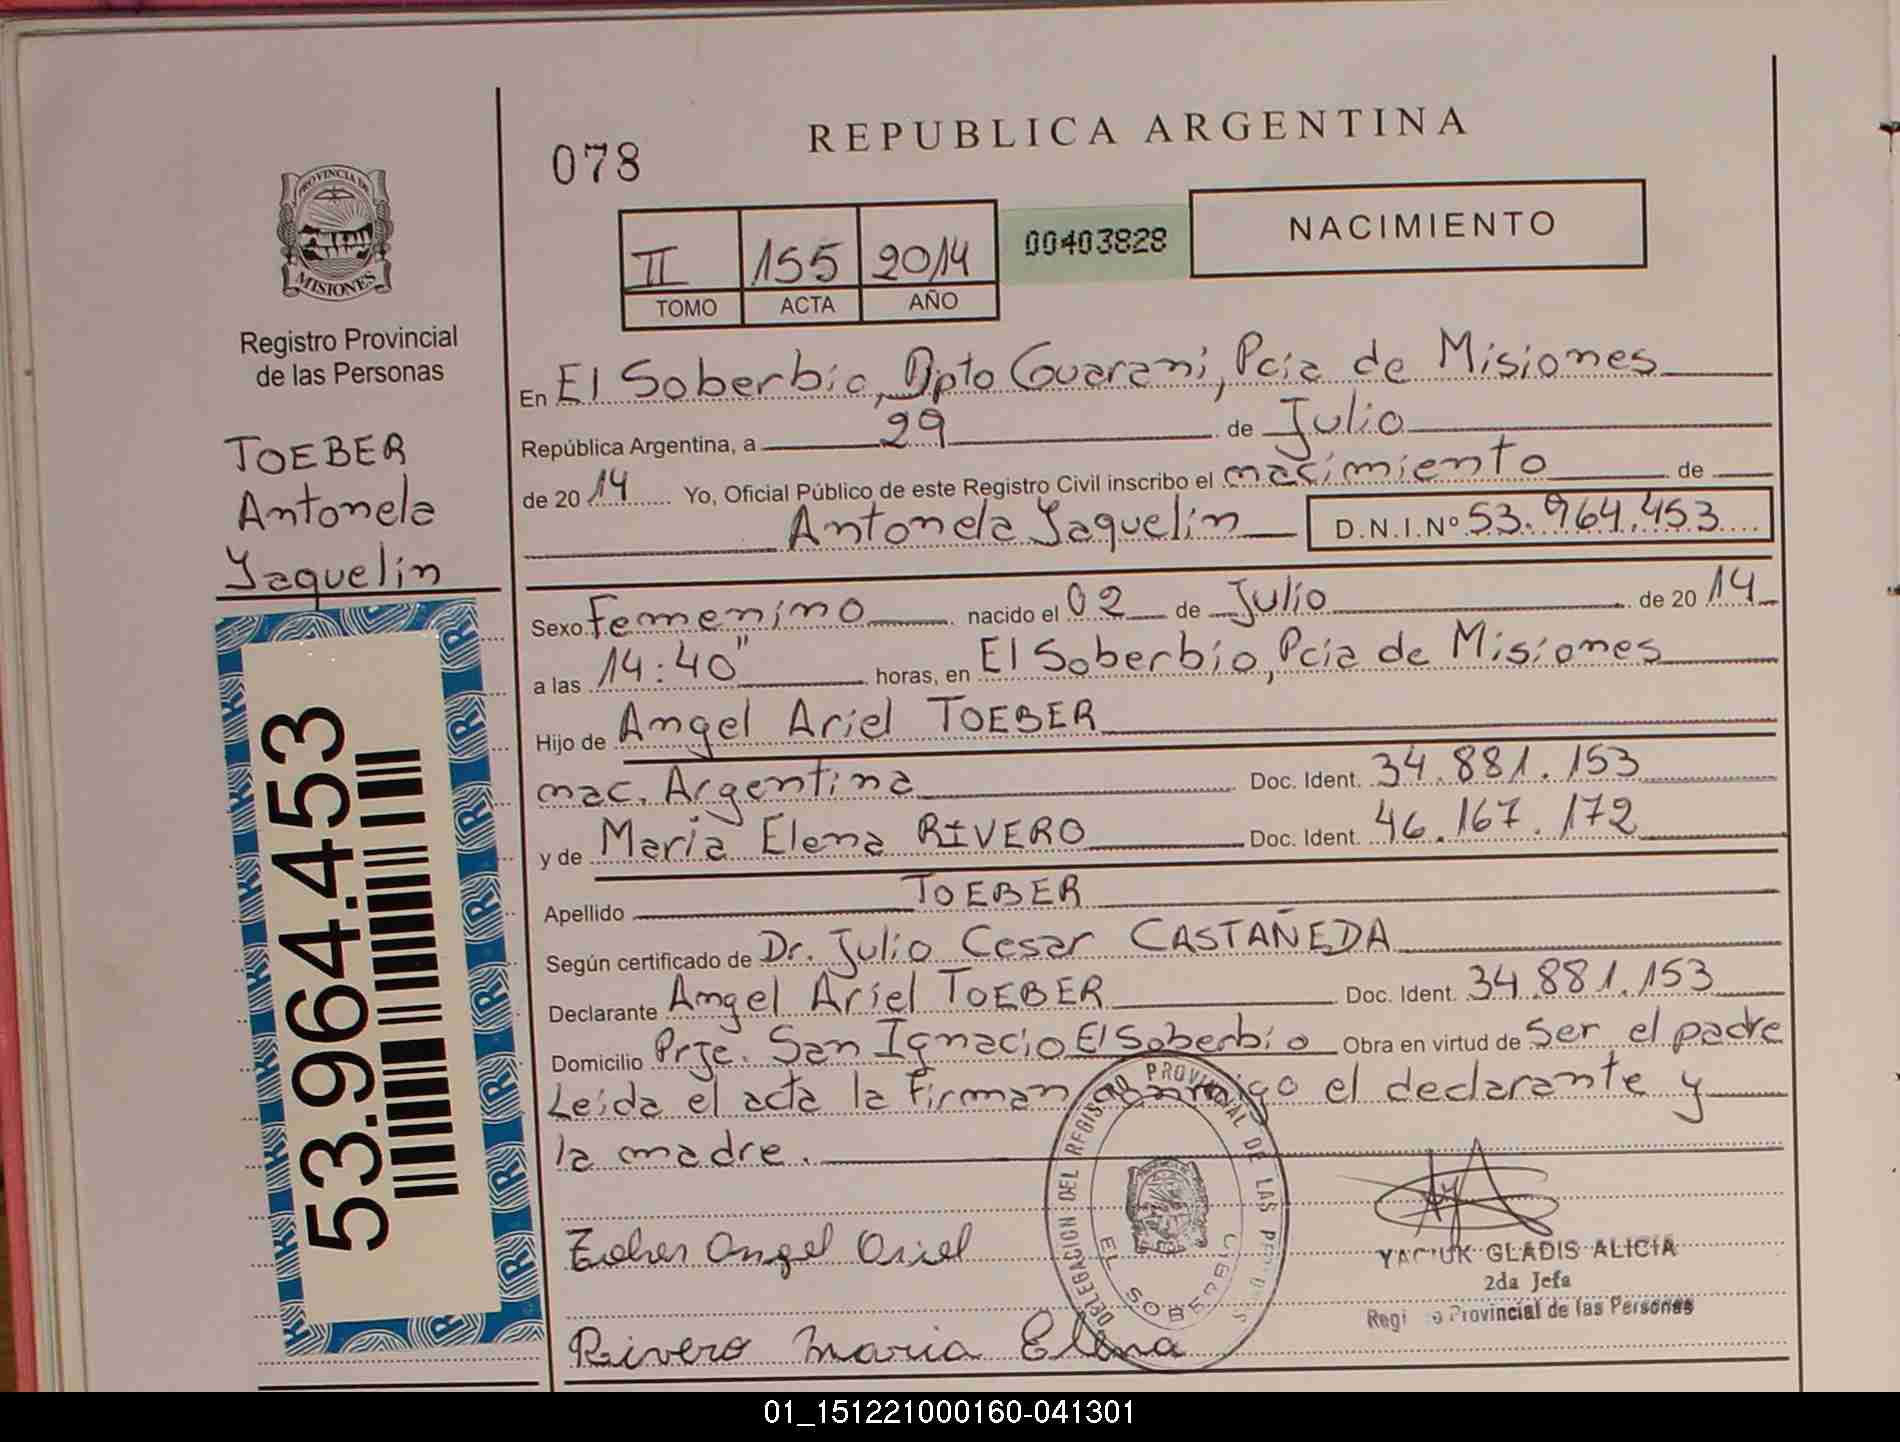 REPUBLICA ARGENTINA
078
PROVINCIA DE
MISIONES
Registro Provincial
de las Personas
TOEBER
Antonela
Yaquelin
53.964.453
II 155 2014
TOMO ACTA AÑO
00403828
NACIMIENTO
En El Soberbio, Dpto Guarani, Pcia de Misiones
República Argentina, a 29 de Julio
de 2014 Yo, Oficial Público de este Registro Civil inscribo el nacimiento de
Antonela Yaquelin D.N.I.Nº 53.964.453
Sexo Femenino nacido el 02 de Julio de 2014
a las 14:40" horas, en El Soberbio, Pcia de Misiones
Hijo de Angel Ariel TOEBER
nac. Argentina Doc. Ident. 34.881.153
y de Maria Elena RIVERO Doc. Ident. 46.167.172
Apellido TOEBER
Según certificado de Dr. Julio Cesar CASTAÑEDA
Declarante Angel Ariel TOEBER Doc. Ident. 34.881.153
Domicilio Prje. San Ignacio El Soberbio Obra en virtud de Ser el padre
Leida el acta la Firman conmigo el declarante y
la madre.
DELEGACION DEL REGISTRO PROVINCIAL DE LAS
EL SOBERBIO
Angel Ariel
Rivero Maria Elena
GLADIS ALICIA
2da Jefa
Provincial de las Personas
01_151221000160-041301